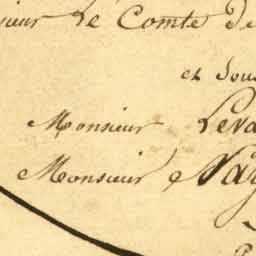 sieur Le Comte De
et Sous
Monsieur Leva
Monsieur Nay